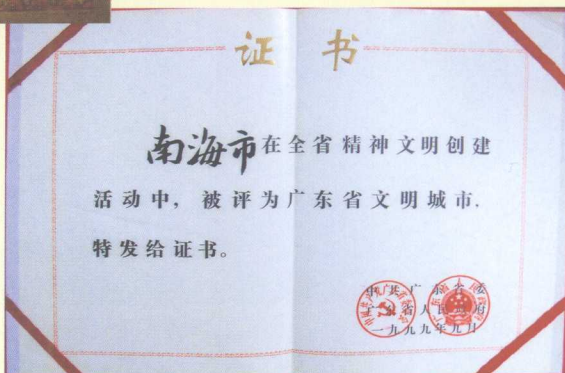 证书
南海市在全省精神文明创建
活动中，被评为广东省文明城市.
特发给证书。
中共广东省委
广东省人民政府
一九九九年九月